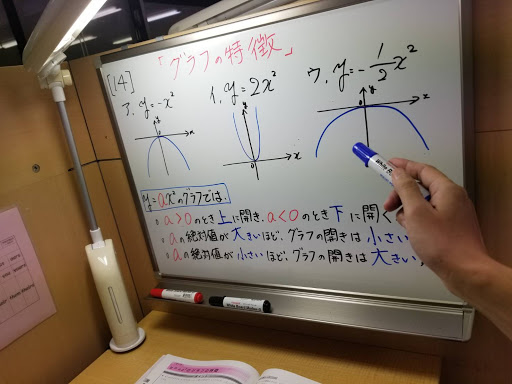 「グラフの特徴」
[14]
ア. y=-x²
イ. y=2x²
ウ. y=-1/2x²
y=ax²のグラフでは
a>0のとき上に開き、a<0のとき下に開く
aの絶対値が大きいほど、グラフの開きは小さい
aの絶対値が小さいほど、グラフの開きは大きい